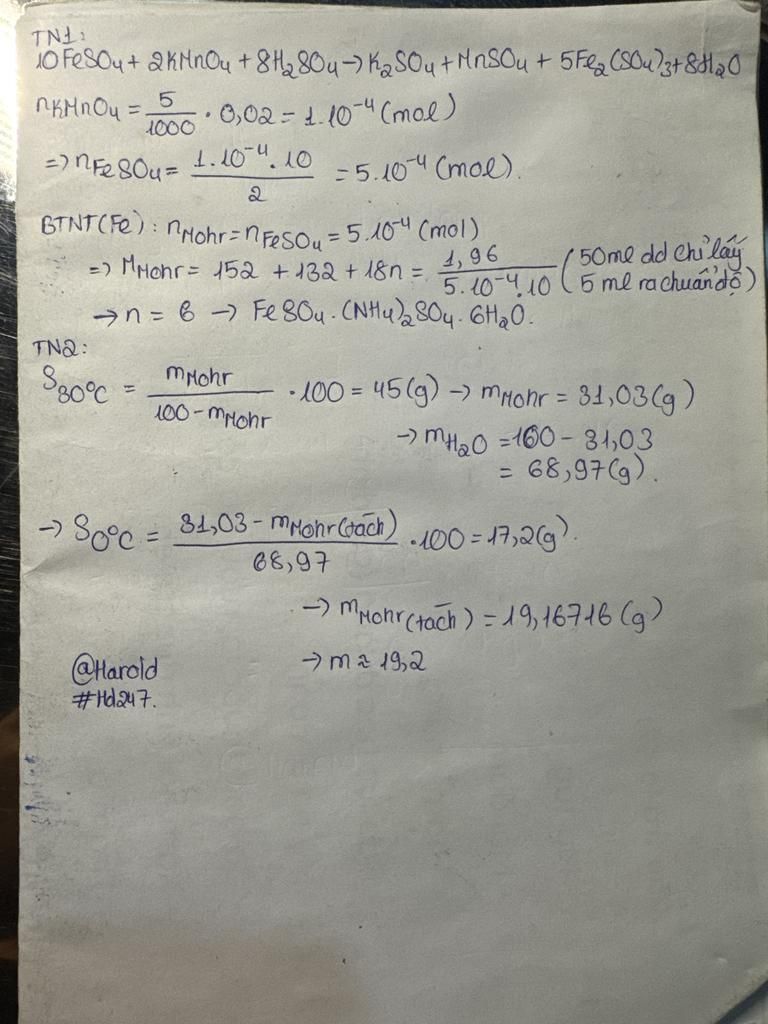 TN1:
10FeSO4 + 2KMnO4 + 8H2SO4 → K2SO4 + MnSO4 + 5Fe2(SO4)3 + 8H2O
nKMnO4 = 5/1000 · 0,02 = 1.10^-4 (mol)
=> nFeSO4 = 1.10^-4.10/2 = 5.10^-4 (mol).
BTNT(Fe): nMohr = nFeSO4 = 5.10^-4 (mol)
=> MMohr = 152 + 132 + 18n = 1,96/5.10^-4.10 (50ml dd chỉ lấy 5 ml ra chuẩn độ)
→ n = 6 → FeSO4.(NH4)2SO4.6H2O.
TN2:
S80°C = mMohr/100 - mMohr · 100 = 45(g) → mMohr = 31,03(g)
→ mH2O = 100 - 31,03
= 68,97(g).
→ S0°C = 31,03 - mMohr(tách)/68,97 · 100 = 17,2(g).
→ mMohr(tách) = 19,16716 (g)
→ m ≈ 19,2
@Harold
#Hd247.